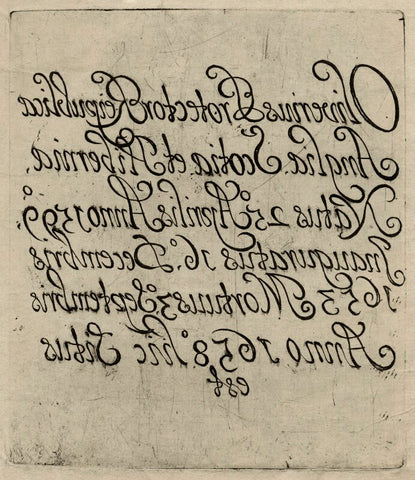 Oliverius Protector Reipublicæ
Angliæ Scotiæ et Hiberniæ.
Natus 25º Aprilis Anno 1599º.
Inauguratus 16º. Decembris
1653 Mortuus 3º Septembris
Anno 1658º hic Situs
est